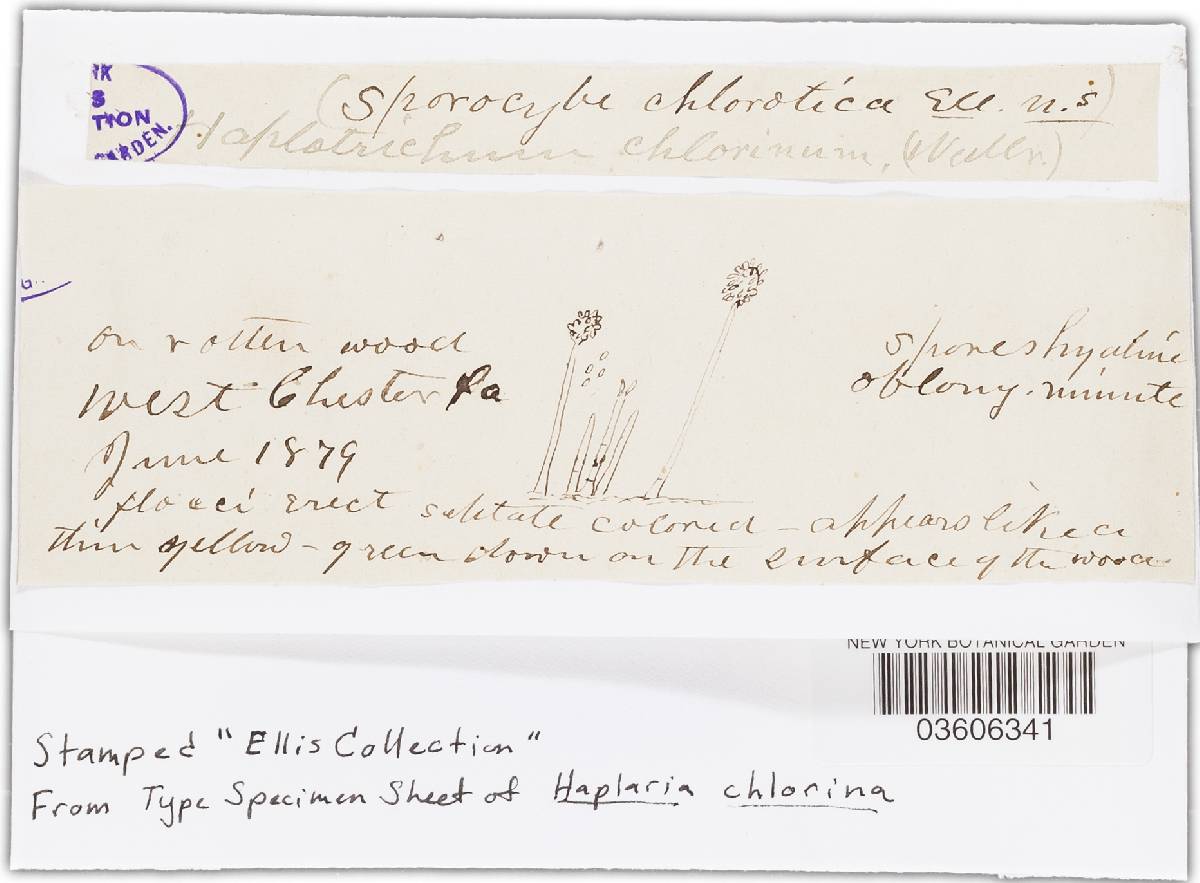 RK
S
TION
GARDEN.
(Sporocybe chlorotica Ell. n.s)
Haplotrichum chlorinum, (Wallr.)
G.
on rotten wood
West Chester Pa
June 1879
spores hyaline
oblong. minute
flocci erect septate colored - appears like a
thin yellow - green down on the surface of the wood
NEW YORK BOTANICAL GARDEN
03606341
Stamped "Ellis Collection"
From Type Specimen Sheet of Haplaria chlorina